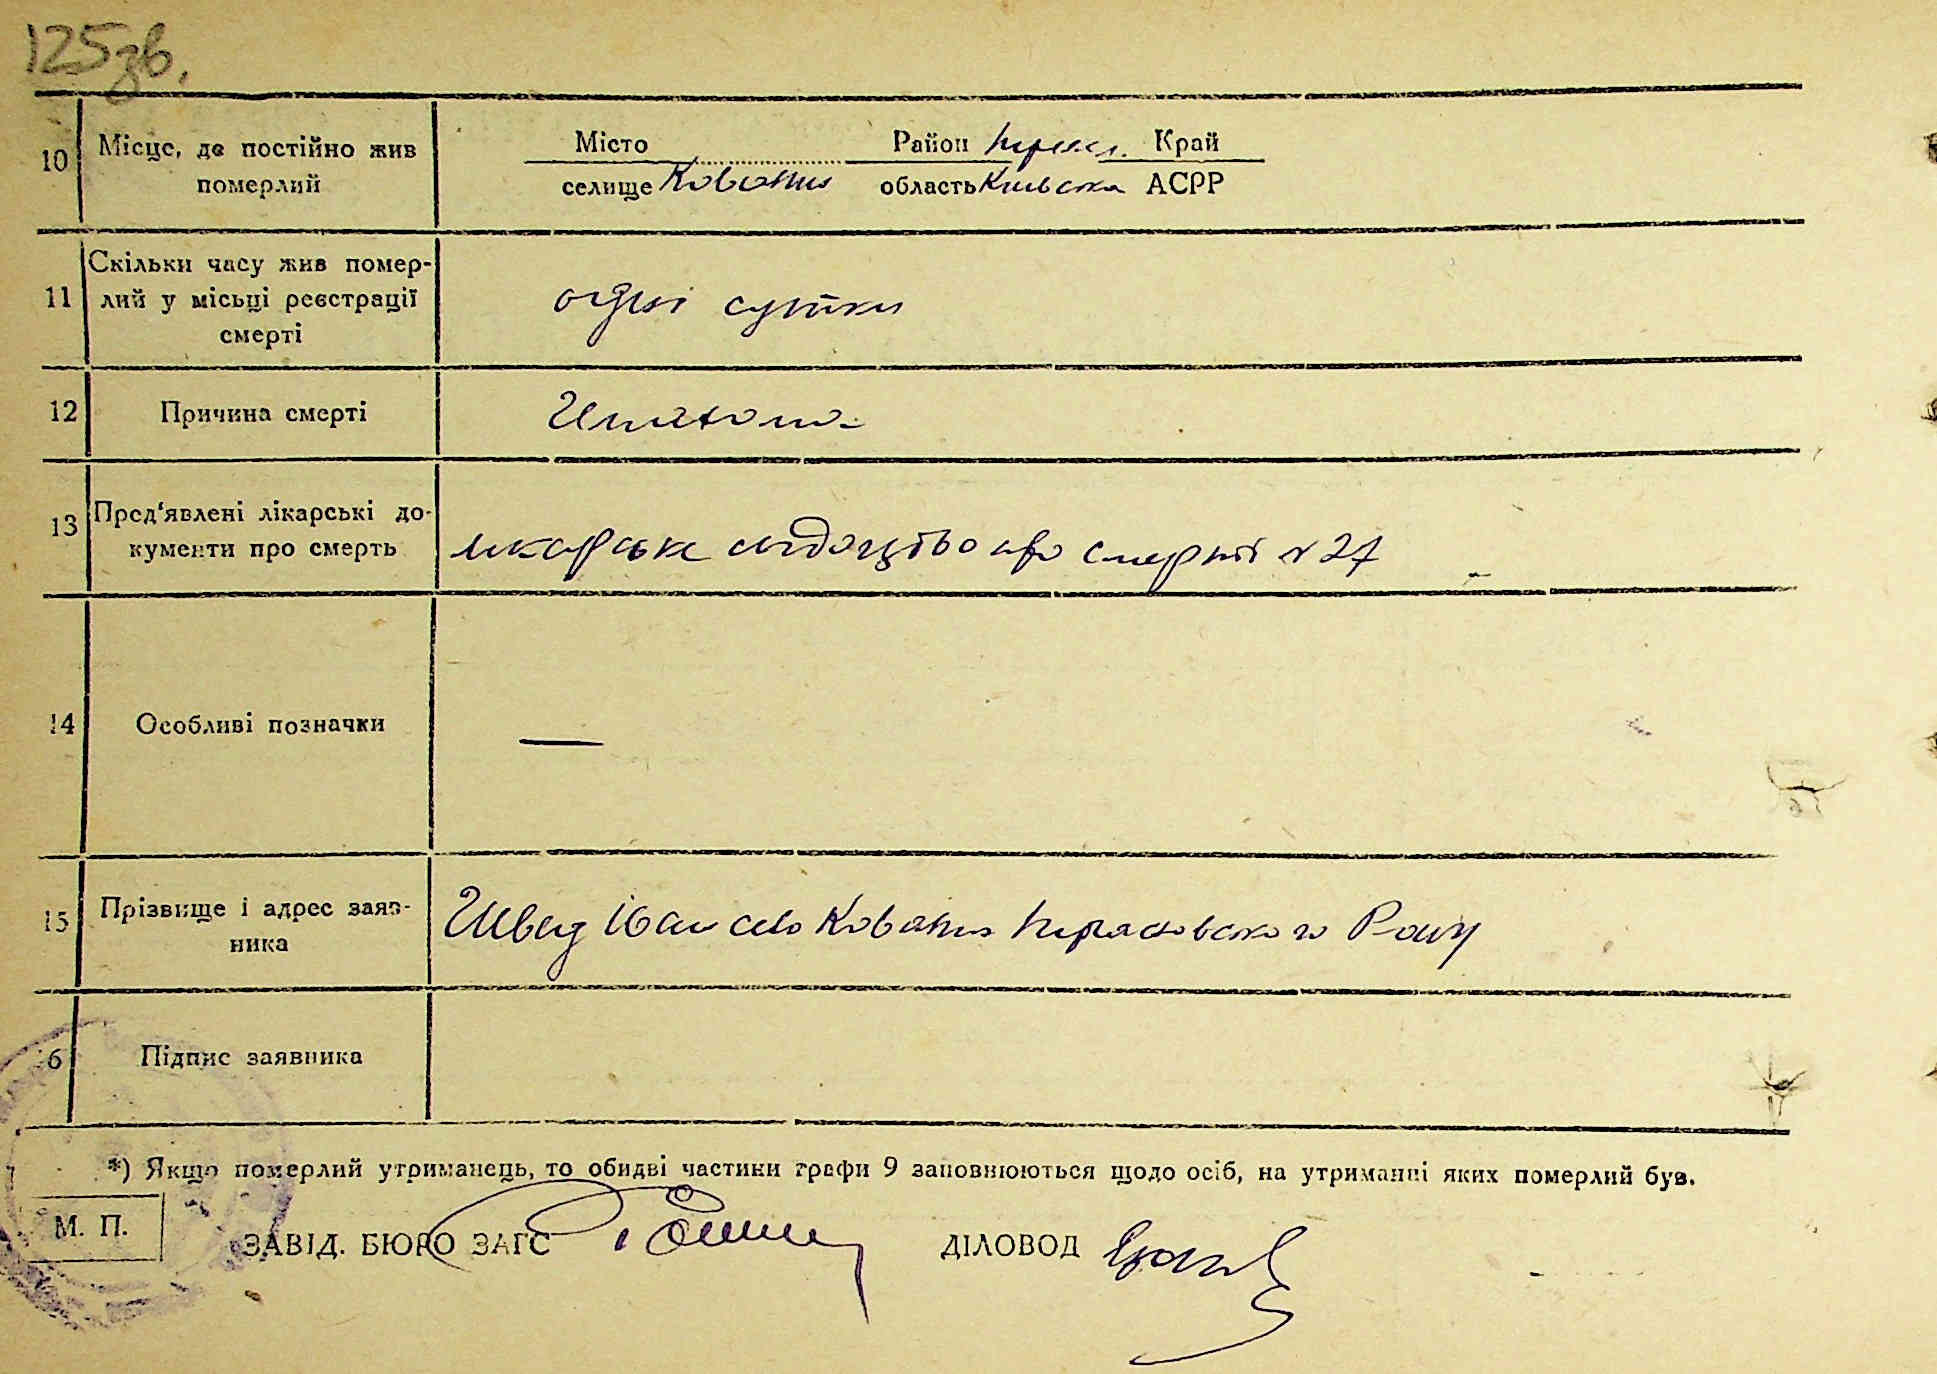 125зв.
10 Місце, де постійно жив померлий
Місто Район Переясл. Край
селище Ковалин область Київська АСРР
11 Скільки часу жив помер-
лий у місьці реєстрації
смерті
одні сутки
12 Причина смерті
13 Пред‘явлені лікарські до-
кументи про смерть
лікарське свідоцтво про смерті № 27
14 Особливі позначки
—
15 Прізвище і адрес заяв-
ника
Швед Іван село Ковалин Переяславського Рону
16 Підпис заявника
*) Якщо померлий утриманець, то обидві частини графи 9 заповнюються щодо осіб, на утриманні яких померлий був.
М. П.
ЗАВІД. БЮРО ЗАГС
ДІЛОВОД